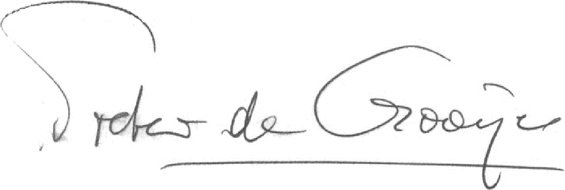 Pieter de Gooijer